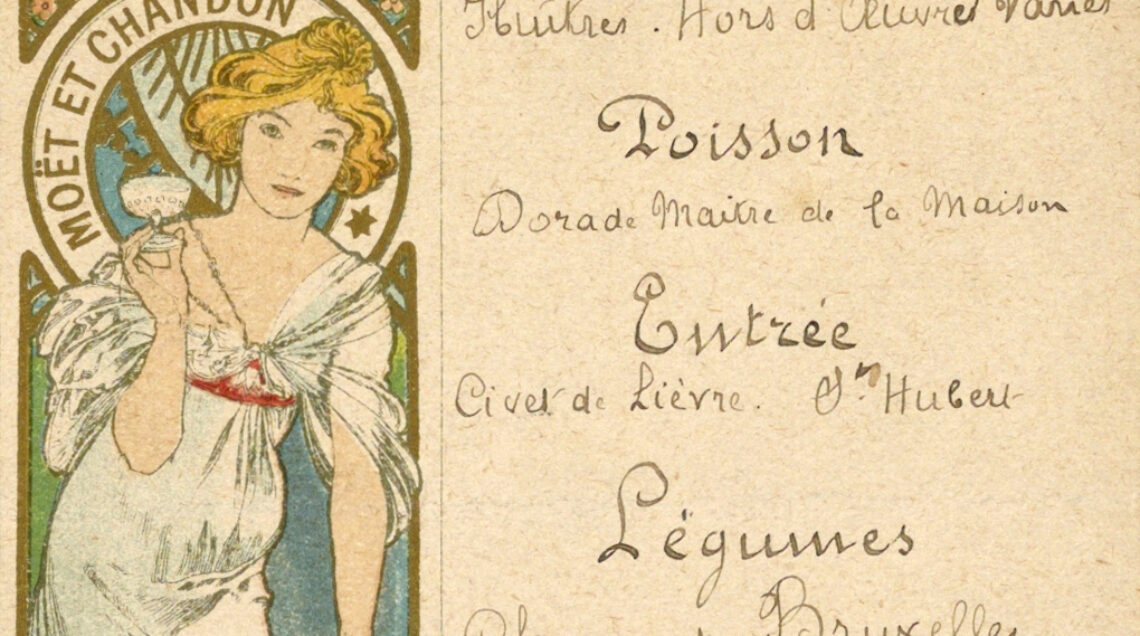 MOËT ET CHANDON
Huîtres. Hors d'Œuvres Variés
Poisson
Dorade Maitre de la Maison
Entrée
Civet de Lièvre. St. Hubert
Légumes
Bruxelles